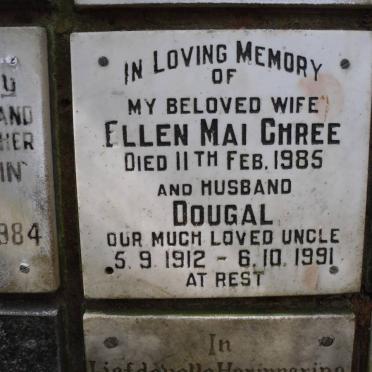 IN LOVING MEMORY
OF
MY BELOVED WIFE
ELLEN MAI CHREE
DIED 11TH FEB. 1985
AND HUSBAND
DOUGAL
OUR MUCH LOVED UNCLE
5.9.1912 - 6.10.1991
AT REST
AND
HER
IN
984
In
Liefdevolle Herinnering